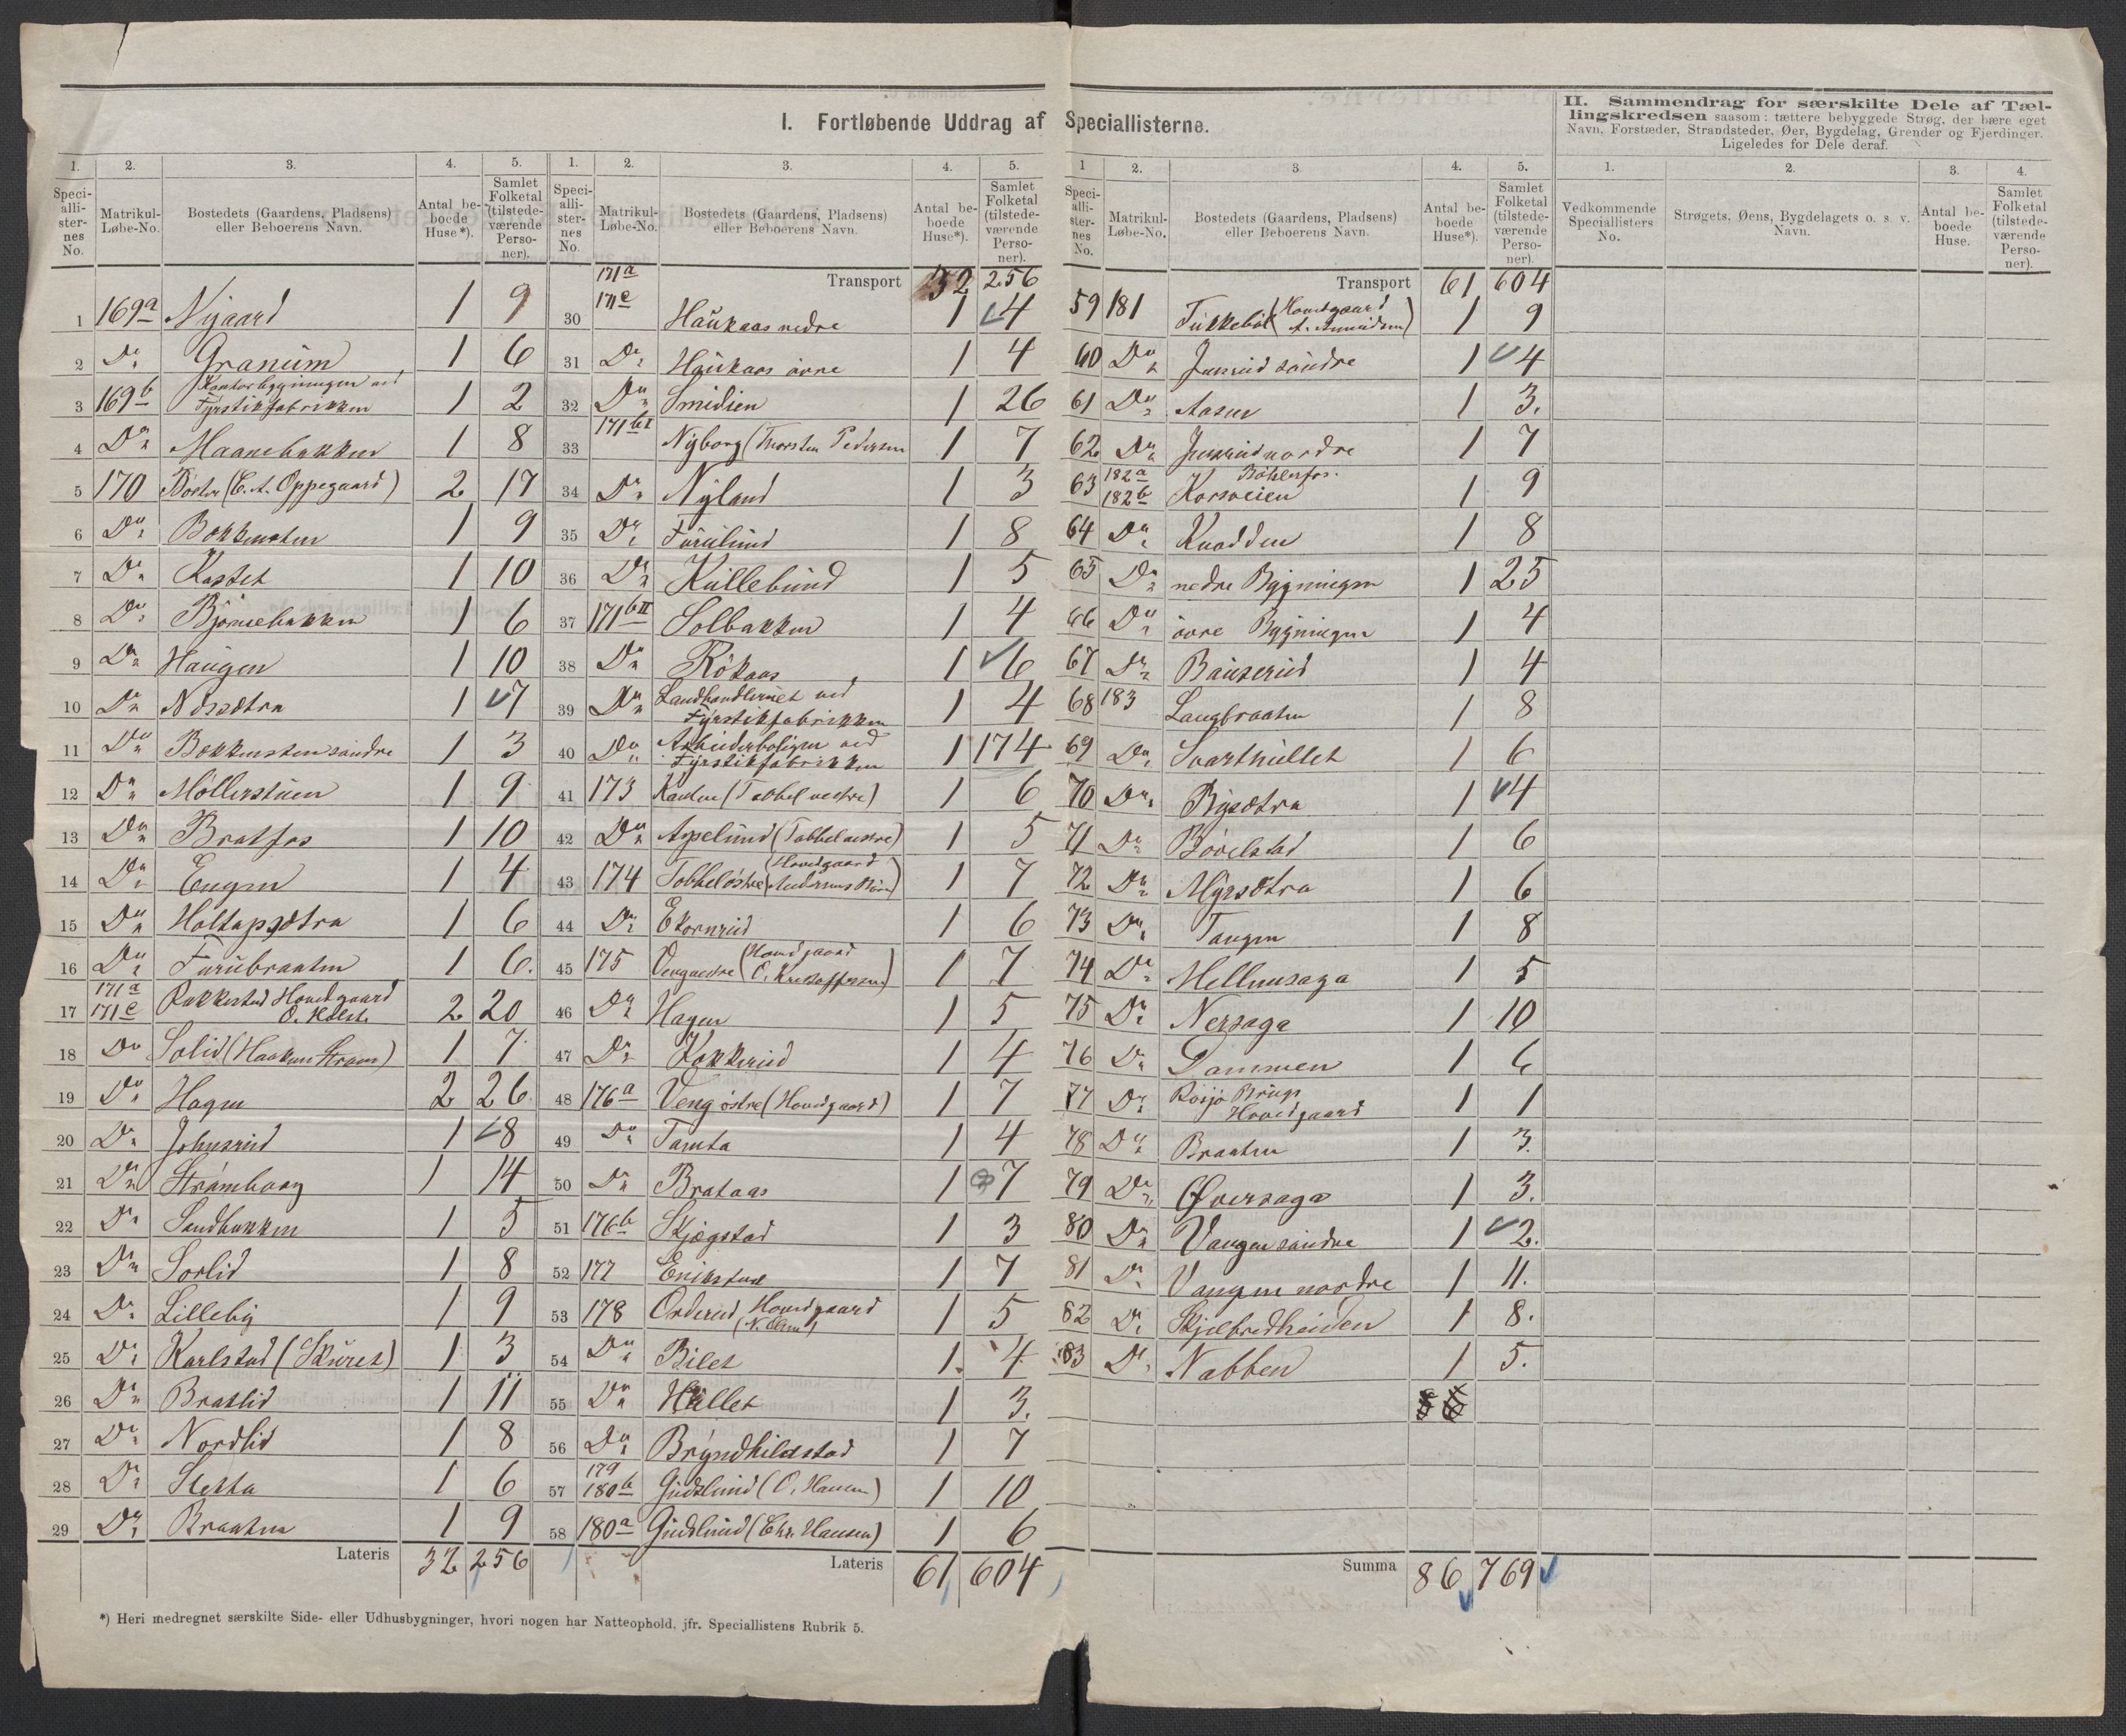 I. Fortløbende Uddrag af Speciallisterne.
II. Sammendrag for særskilte Dele af Tæl-
lingskredsen saasom: tættere bebyggede Strøg, der bære eget
Navn, Forstæder, Strandsteder, Øer, Bygdelag, Grender og Fjerdinger.
Ligeledes for Dele deraf.
1. 2. 3. 4. 5.
Speci-alli-ster-nes No. Matrikul-Løbe-No. Bostedets (Gaardens, Pladsens) eller Beboerens Navn. Antal be-boede Huse*). Samlet Folketal (tilstede-værende Perso-ner).
1 169a Nygaard 1 9
2 Do Granum 1 6
3 169b Kontorbygningen ved Fyrstikfabrikken 1 2
4 Do Maanebakken 1 8
5 170 (E. A. Oppegaard) 2 17
6 Do Bekkensten 1 9
7 Do Kastet 1 10
8 Do Bjørnebakken 1 6
9 Do Haugen 1 10
10 Do Næssætra 1 7
11 Do Bekkensten søndre 1 3
12 Do Møllerstuen 1 9
13 Do Bratfos 1 10
14 Do Engen 1 4
15 Do Holtapsætra 1 6
16 Do Furubraaten 1 6.
17 171a 171c Rakkestad Hovedgaard O. Holst 2 20
18 Do Solid (Haaken Strøm) 1 7
19 Do Hagen 2 26
20 Do Johnsrud 1 8
21 Do Strømborg 1 14
22 Do Sandbakken 1 5
23 Do Sorlid 1 8
24 Do Lilleby 1 9
25 Do Karlstad (Skuret) 1 3
26 Do Bratlid 1 11
27 Do Nordlid 1 8
28 Do Sletta 1 6
29 Do Braaten 1 9
Lateris 32 256
1. 2. 3. 4. 5.
Speci-alli-ster-nes No. Matrikul-Løbe-No. Bostedets (Gaardens, Pladsens) eller Beboerens Navn. Antal be-boede Huse*). Samlet Folketal (tilstede-værende Perso-ner).
Transport 32 256
30 171a 171c Haukaas nedre 1 4
31 Do Haukaas øvre 1 4
32 Do Smidien 1 26
33 171bI Nyborg (Thorsten Pedersen 1 7
34 Do Nyland 1 3
35 Do Furulund 1 8
36 Do Kullebund 1 5
37 171bII Solbakken 1 4
38 Do Røkaas 1 6
39 Do Landhandleriet ved Fyrstikfabrikken 1 4
40 Do Arbeiderboligen ved Fyrstikfabrikken 1 174
41 173 (Tobbel vestre) 1 6
42 Do Aspelund (Tobbel vestre) 1 5
43 174 Tobbel østre (Hovedgaard Andersen) 1 7
44 Do Ekornrud 1 6
45 175 Veng vestre (Hovedgaard O. Kristoffersen) 1 7
46 Do Hagen 1 5
47 Do Kokkerud 1 4
48 176a Veng østre (Hovedgaard) 1 7
49 Do Tomta 1 4
50 Do Brataas 1 7
51 176b Skjøgstad 1 3
52 177 Erikstad 1 7
53 178 Orderud Hovedgaard (N. Olsen) 1 5
54 Do Bilet 1 4
55 Do Hullet 1 3.
56 Do Bryndhildstad 1 7
57 179 180b Gudslund (O. Hansen) 1 10
58 180a Gudslund (Chr. Hansen) 1 6
Lateris 61 604
1 2. 3 4. 5.
Speci-alli-ster-nes No. Matrikul-Løbe-No. Bostedets (Gaardens, Pladsens) eller Beboerens Navn. Antal be-boede Huse*). Samlet Folketal (tilstede-værende Perso-ner).
Transport 61 604
59 181 (Hovedgaard A. Amundsen) 1 9
60 Do Jusrud søndre 1 4
61 Do Aasen 1 3.
62 Do Jusrud nordre 1 7
63 182a 182b Bøhlerfos. Korsveien 1 9
64 Do Knadden 1 8
65 Do nedre Bygningen 1 25
66 Do øvre Bygningen 1 4
67 Do Bauserud 1 4
68 183 Langbraaten 1 8
69 Do Svarthullet 1 6
70 Do Rysætra 1 4
71 Do Bøvelstad 1 6
72 Do Myrsætra 1 6
73 Do Tangen 1 8
74 Do Mellemsaga 1 5
75 Do Nersaga 1 10
76 Do Dammen 1 6
77 Do Røsjø Brugs Hovedgaard 1 1
78 Do Braaten 1 3.
79 Do Øversaga 1 3.
80 Do Vangen søndre 1 2.
81 Do Vangen nordre 1 11.
82 Do Skjelbredheiden 1 8.
83 Do Nabben 1 5.
86
Summa 86 769
1. 2. 3. 4.
Vedkommende Speciallisters No. Strøgets, Øens, Bygdelagets o. s. v. Navn. Antal be-boede Huse. Samlet Folketal (tilstede-værende Perso-ner).
*) Heri medregnet særskilte Side- eller Udhusbygninger, hvori nogen har Natteophold, jfr. Speciallistens Rubrik 5.